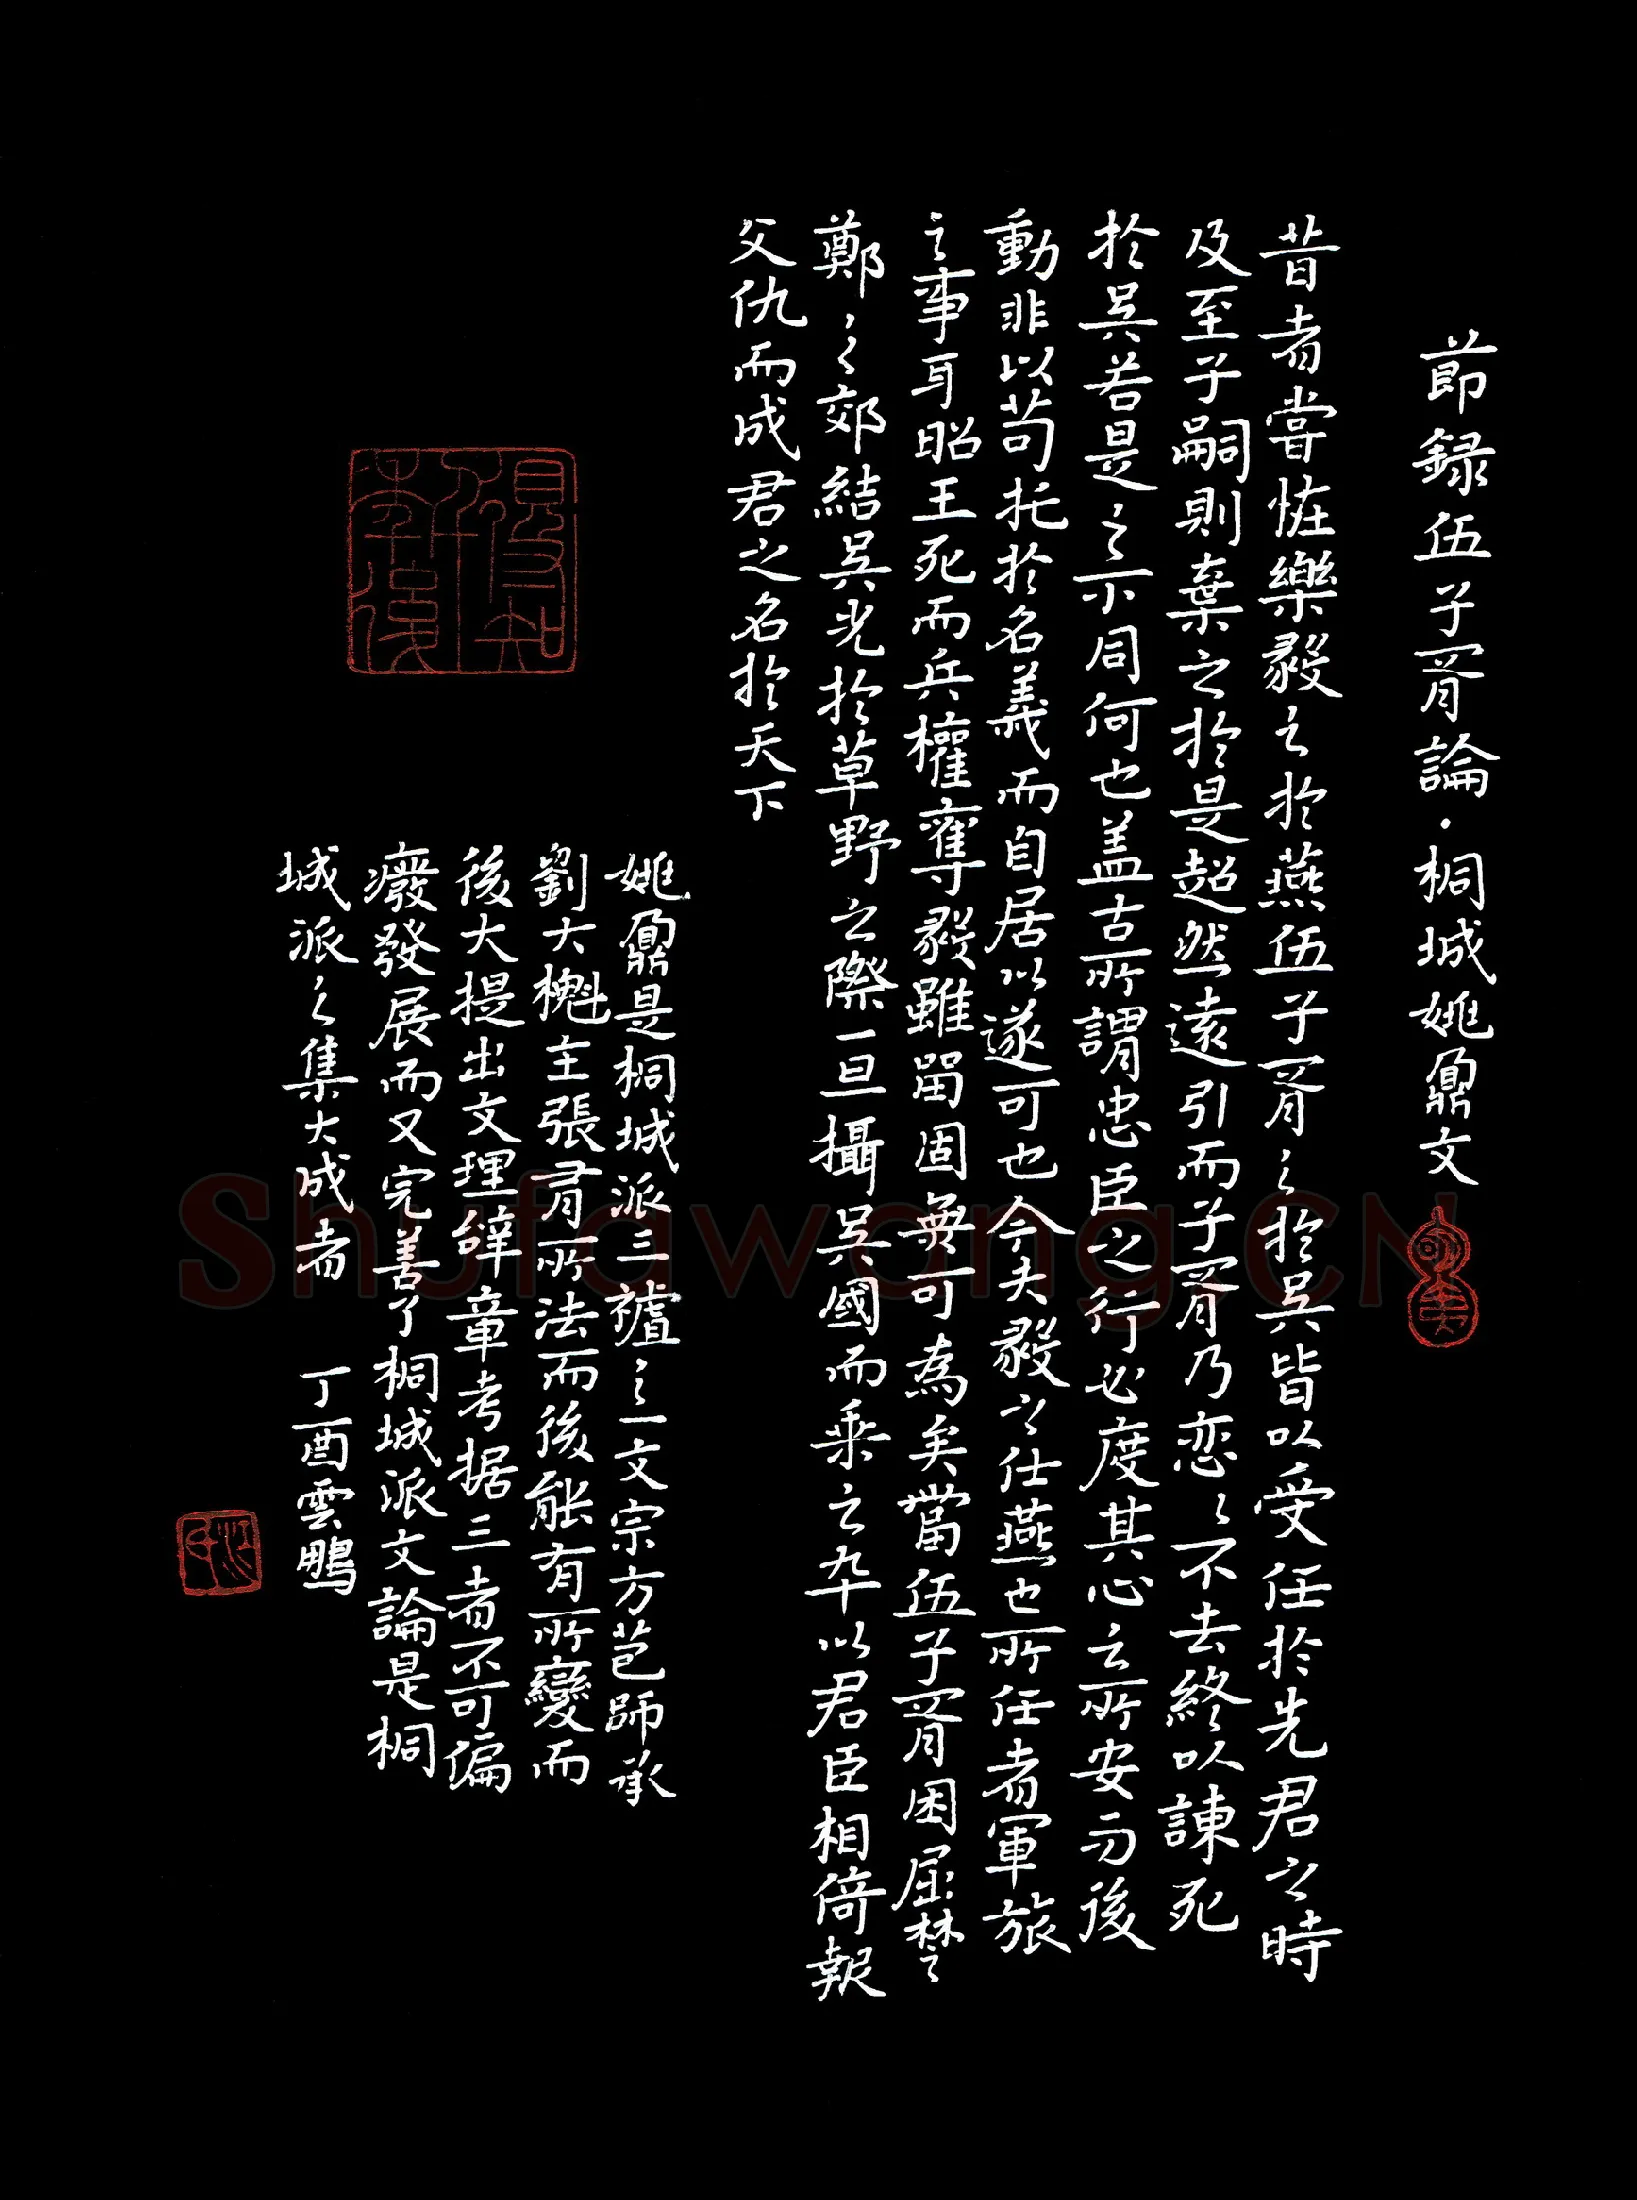 節録伍子胥論·桐城姚鼐文
昔者嘗怪樂毅之於燕伍子胥之於吳皆以受任於先君之時
及至子嗣則棄之於是超然遠引而子胥乃恋〻不去終以諫死
於吳若是之不同何也盖古所謂忠臣之行必度其心之所安而後
動非以苟托於名義而自居以遂可也今夫毅之仕燕也所任者軍旅
之事耳昭王死而兵權奪毅雖留固無可為矣當伍子胥困屈楚
鄭〻之郊結吳光於草野之際一旦攝吳國而乘之卒以君臣相倚報
父仇而成君之名於天下
姚鼐是桐城派三祖之一文宗方苞師承
劉大櫆主張有所法而後能有所變而
後大提出文理辭章考据三者不可偏
癈發展而又完善了桐城派文論是桐
城派之集大成者 丁酉雲鵬
Shufawang.CN